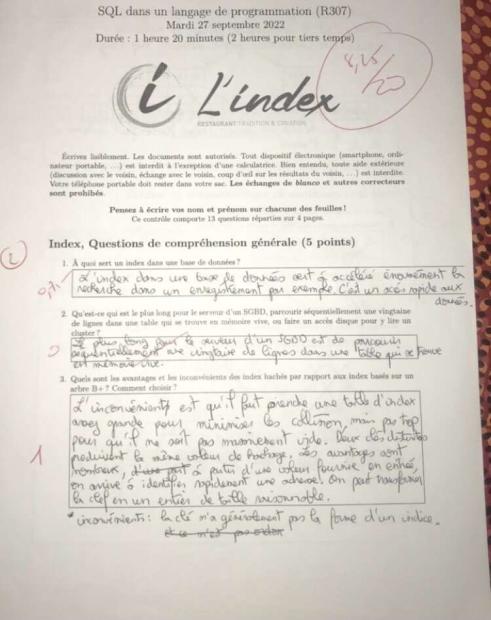 SQL dans un langage de programmation (R307)
Mardi 27 septembre 2022
Durée : 1 heure 20 minutes (2 heures pour tiers temps)
8,25/20
i L'index
RESTAURANT TRADITION & CREATION
Écrivez lisiblement. Les documents sont autorisés. Tout dispositif électronique (smartphone, ordi-
nateur portable, ...) est interdit à l'exception d'une calculatrice. Bien entendu, toute aide extérieure
(discussion avec le voisin, échange avec le voisin, coup d'œil sur les résultats du voisin, ...) est interdite.
Votre téléphone portable doit rester dans votre sac. Les échanges de blanco et autres correcteurs
sont prohibés.
Pensez à écrire vos nom et prénom sur chacune des feuilles !
Ce contrôle comporte 13 questions réparties sur 4 pages.
Index, Questions de compréhension générale (5 points)
1. À quoi sert un index dans une base de données ?
L'index dans une base de données sert à accéléré énormément la
recherche dans un enregistrement par exemple. C'est un accès rapide aux
données.
2. Qu'est-ce qui est le plus long pour le serveur d'un SGBD, parcourir séquentiellement une vingtaine
de lignes dans une table qui se trouve en mémoire vive, ou faire un accès disque pour y lire un
cluster ?
Le plus long pour le serveur d'un SGBD est de parcourir
séquentiellement une vingtaine de lignes dans une table qui se trouve
en mémoire vive.
3. Quels sont les avantages et les inconvénients des index hachés par rapport aux index basés sur un
arbre B+ ? Comment choisir ?
1
L'inconvénients est qu'il faut prendre une table d'index
assez grande pour minimiser les collision, mais pas trop
pour qu'il ne soit pas massivement vide. Deux clés distinctes
produisent la même valeur de hachage. Les avantages sont
nombreux, d'une part à partir d'une valeur fournie en entrée,
on arrive à identifier rapidement une adresse. On peut transformer
la clef en un entier de table raisonnable.
* inconvénients : la clé n'a généralement pas la forme d'un indice.